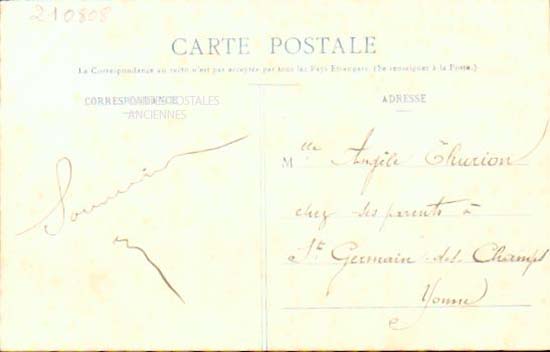 210808
CARTE POSTALE
La Correspondance au recto n'est pas acceptée par tous les Pays Etrangers. (Se renseigner à la Poste.)
CORRESPONDANCE
CARTES POSTALES
ANCIENNES
ADRESSE
Souvenir
Mlle Angèle Thurion
chez ses parents à
St Germain des Champs
Yonne